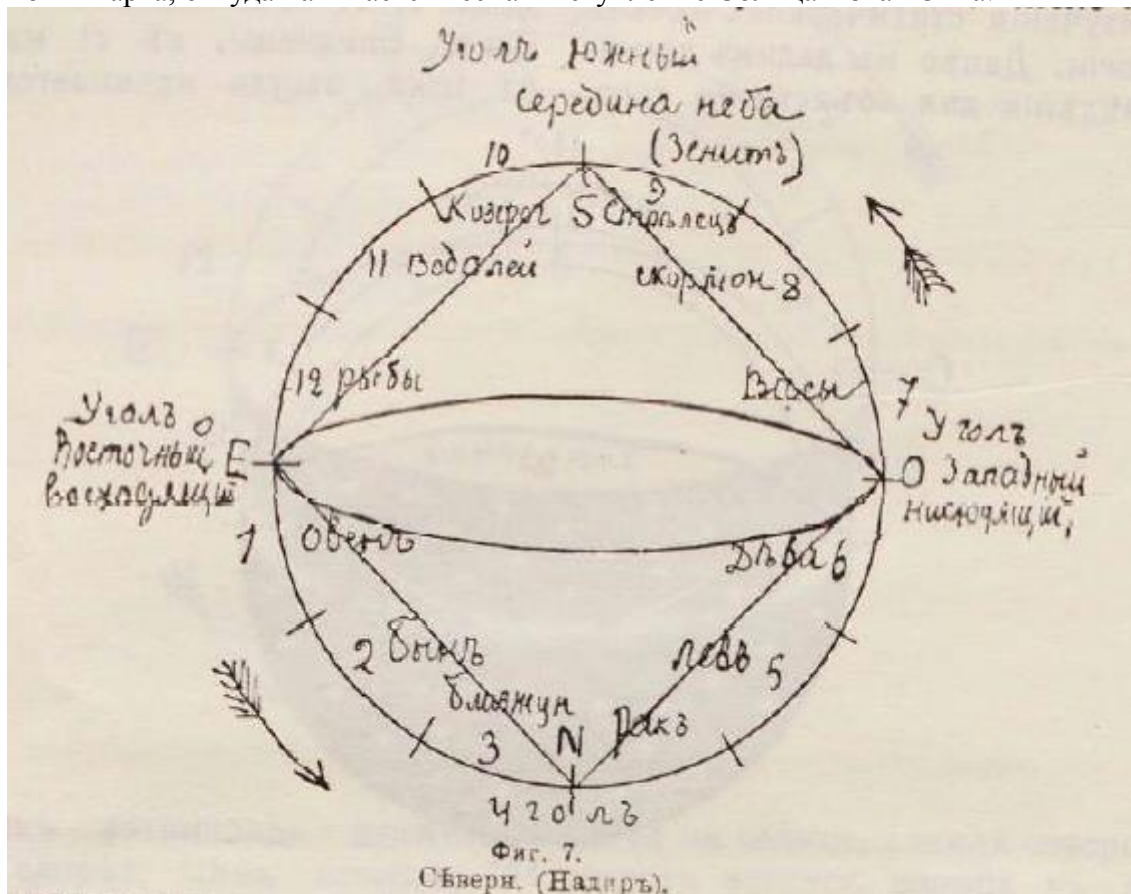 Уголъ Южный
середина неба
(Зенитъ)
10
9
Козерог S Стрѣлецъ
11 Водолей
скорпион 8
12 рыбы
Вѣсы
7
Уголъ
Восточный E
восходящий
Уголъ
O Западный
нисходящий
1
Овенъ
Дѣва 6
2 Быкъ
левъ 5
близнун
Ракъ
3
N
Уголъ
Фиг. 7.
Сѣверн. (Надиръ).